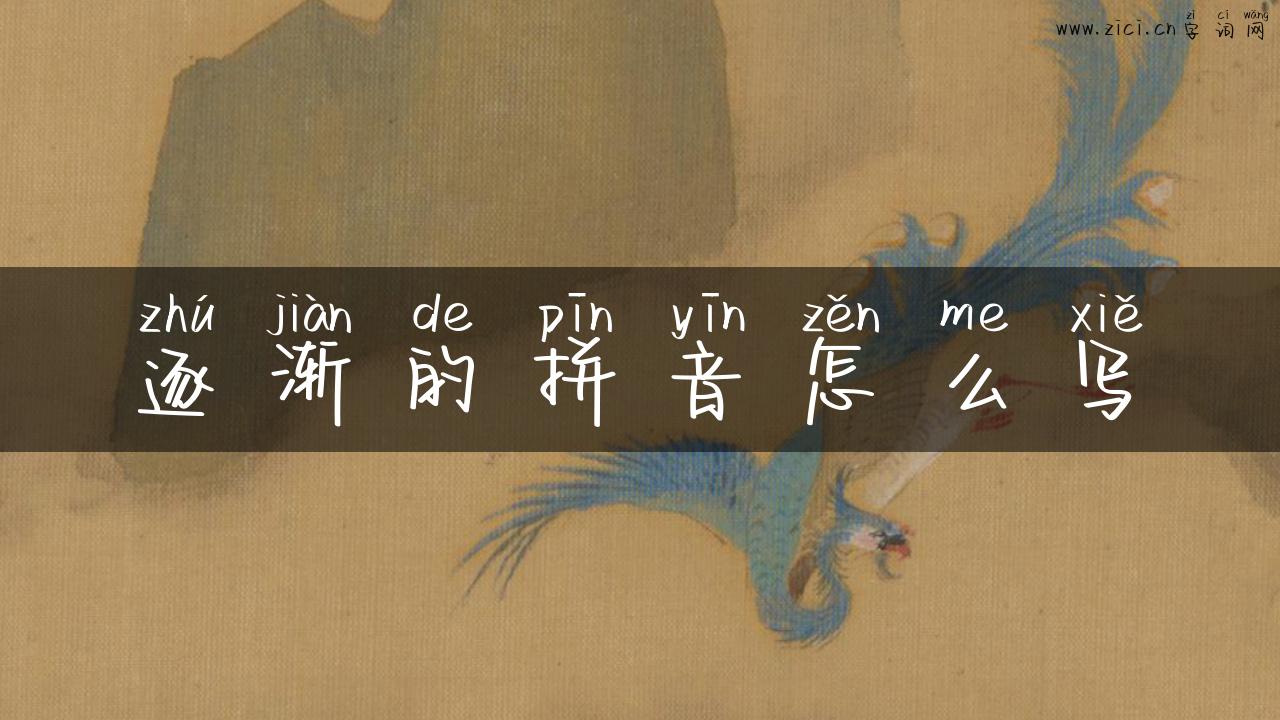 zì cí wǎng
www.zici.cn字词网
zhú jiàn de pīn yīn zěn me xiě
逐渐的拼音怎么写